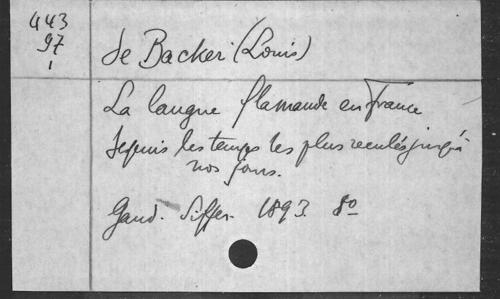 443
97
1
de Backer (Louis)
La langue flamande en France
depuis les temps les plus reculés jusqu'à
nos jours.
Gand. Siffer. 1893. 8º